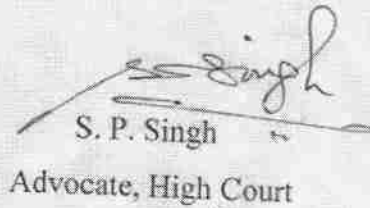 S. P. Singh
Advocate, High Court